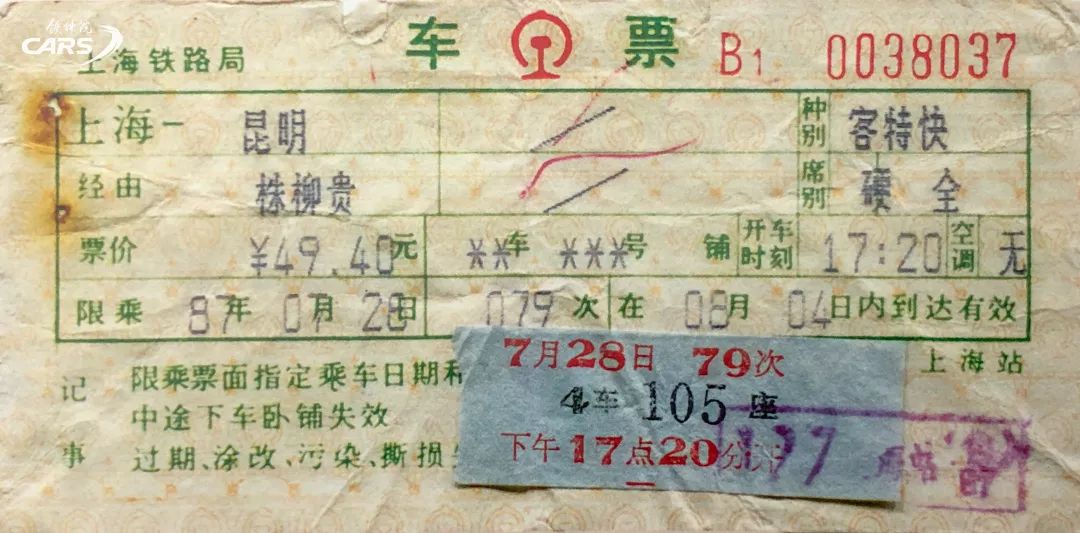 CARS
车 票 B1 0038037
上海铁路局
上海— 昆明 种别 客特快
经由 株柳贵 席别 硬 全
票价 ¥49.40元 **车 ***号 铺 开车时刻 17:20 空调 无
限乘 87年 07月 28日 079次 在 08月 04日内到达有效
7月28日 79次
上海站
记事
限乘票面指定乘车日期
4车 105座
中途下车卧铺失效
下午17点20分开
过期、涂改、污染、撕损